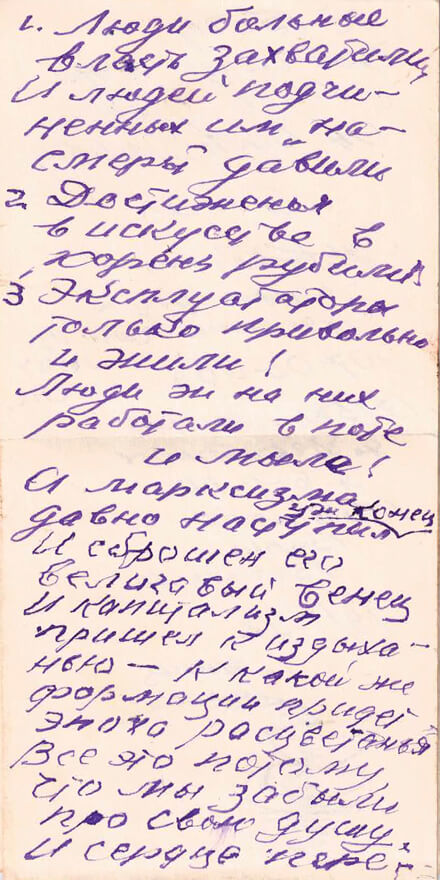 1. Люди больные
власть захватили
И людей подчи-
ненных им на-
смерть давили
2. Достиженья
в искусстве в
корень рубили
3 Эксплуататоры
только привольно
и жили!
Люди ж на них
работали в поте
и мыла!
А марксизма
уж конец
давно наступил
И сброшен его
величавый венец
И капитализм
пришел к издыха-
нью – К какой же
формации придет
эпоха расцветанья
Все это потому,
что мы забыли
про свою душу.
И сердца пере-